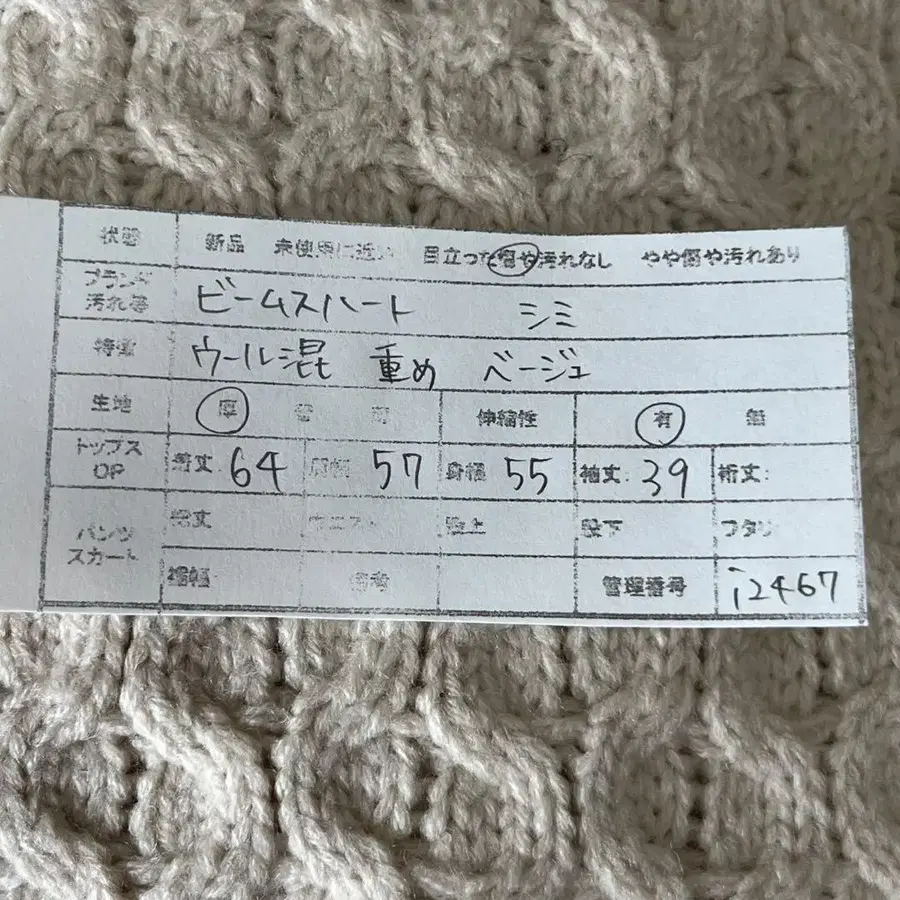 状態 新品 未使用に近い 目立った傷や汚れなし やや傷や汚れあり
ブランド 汚れ等 ビームスハート シミ
特徴 ウール混 重め ベージュ
生地 厚 伸縮性 有 無
トップス OP 着丈: 64 57 身幅 55 袖丈: 39 裄丈:
パンツ スカート 総丈 ウエスト 股上 股下 ワタリ
裾幅 備考 管理番号 i2467